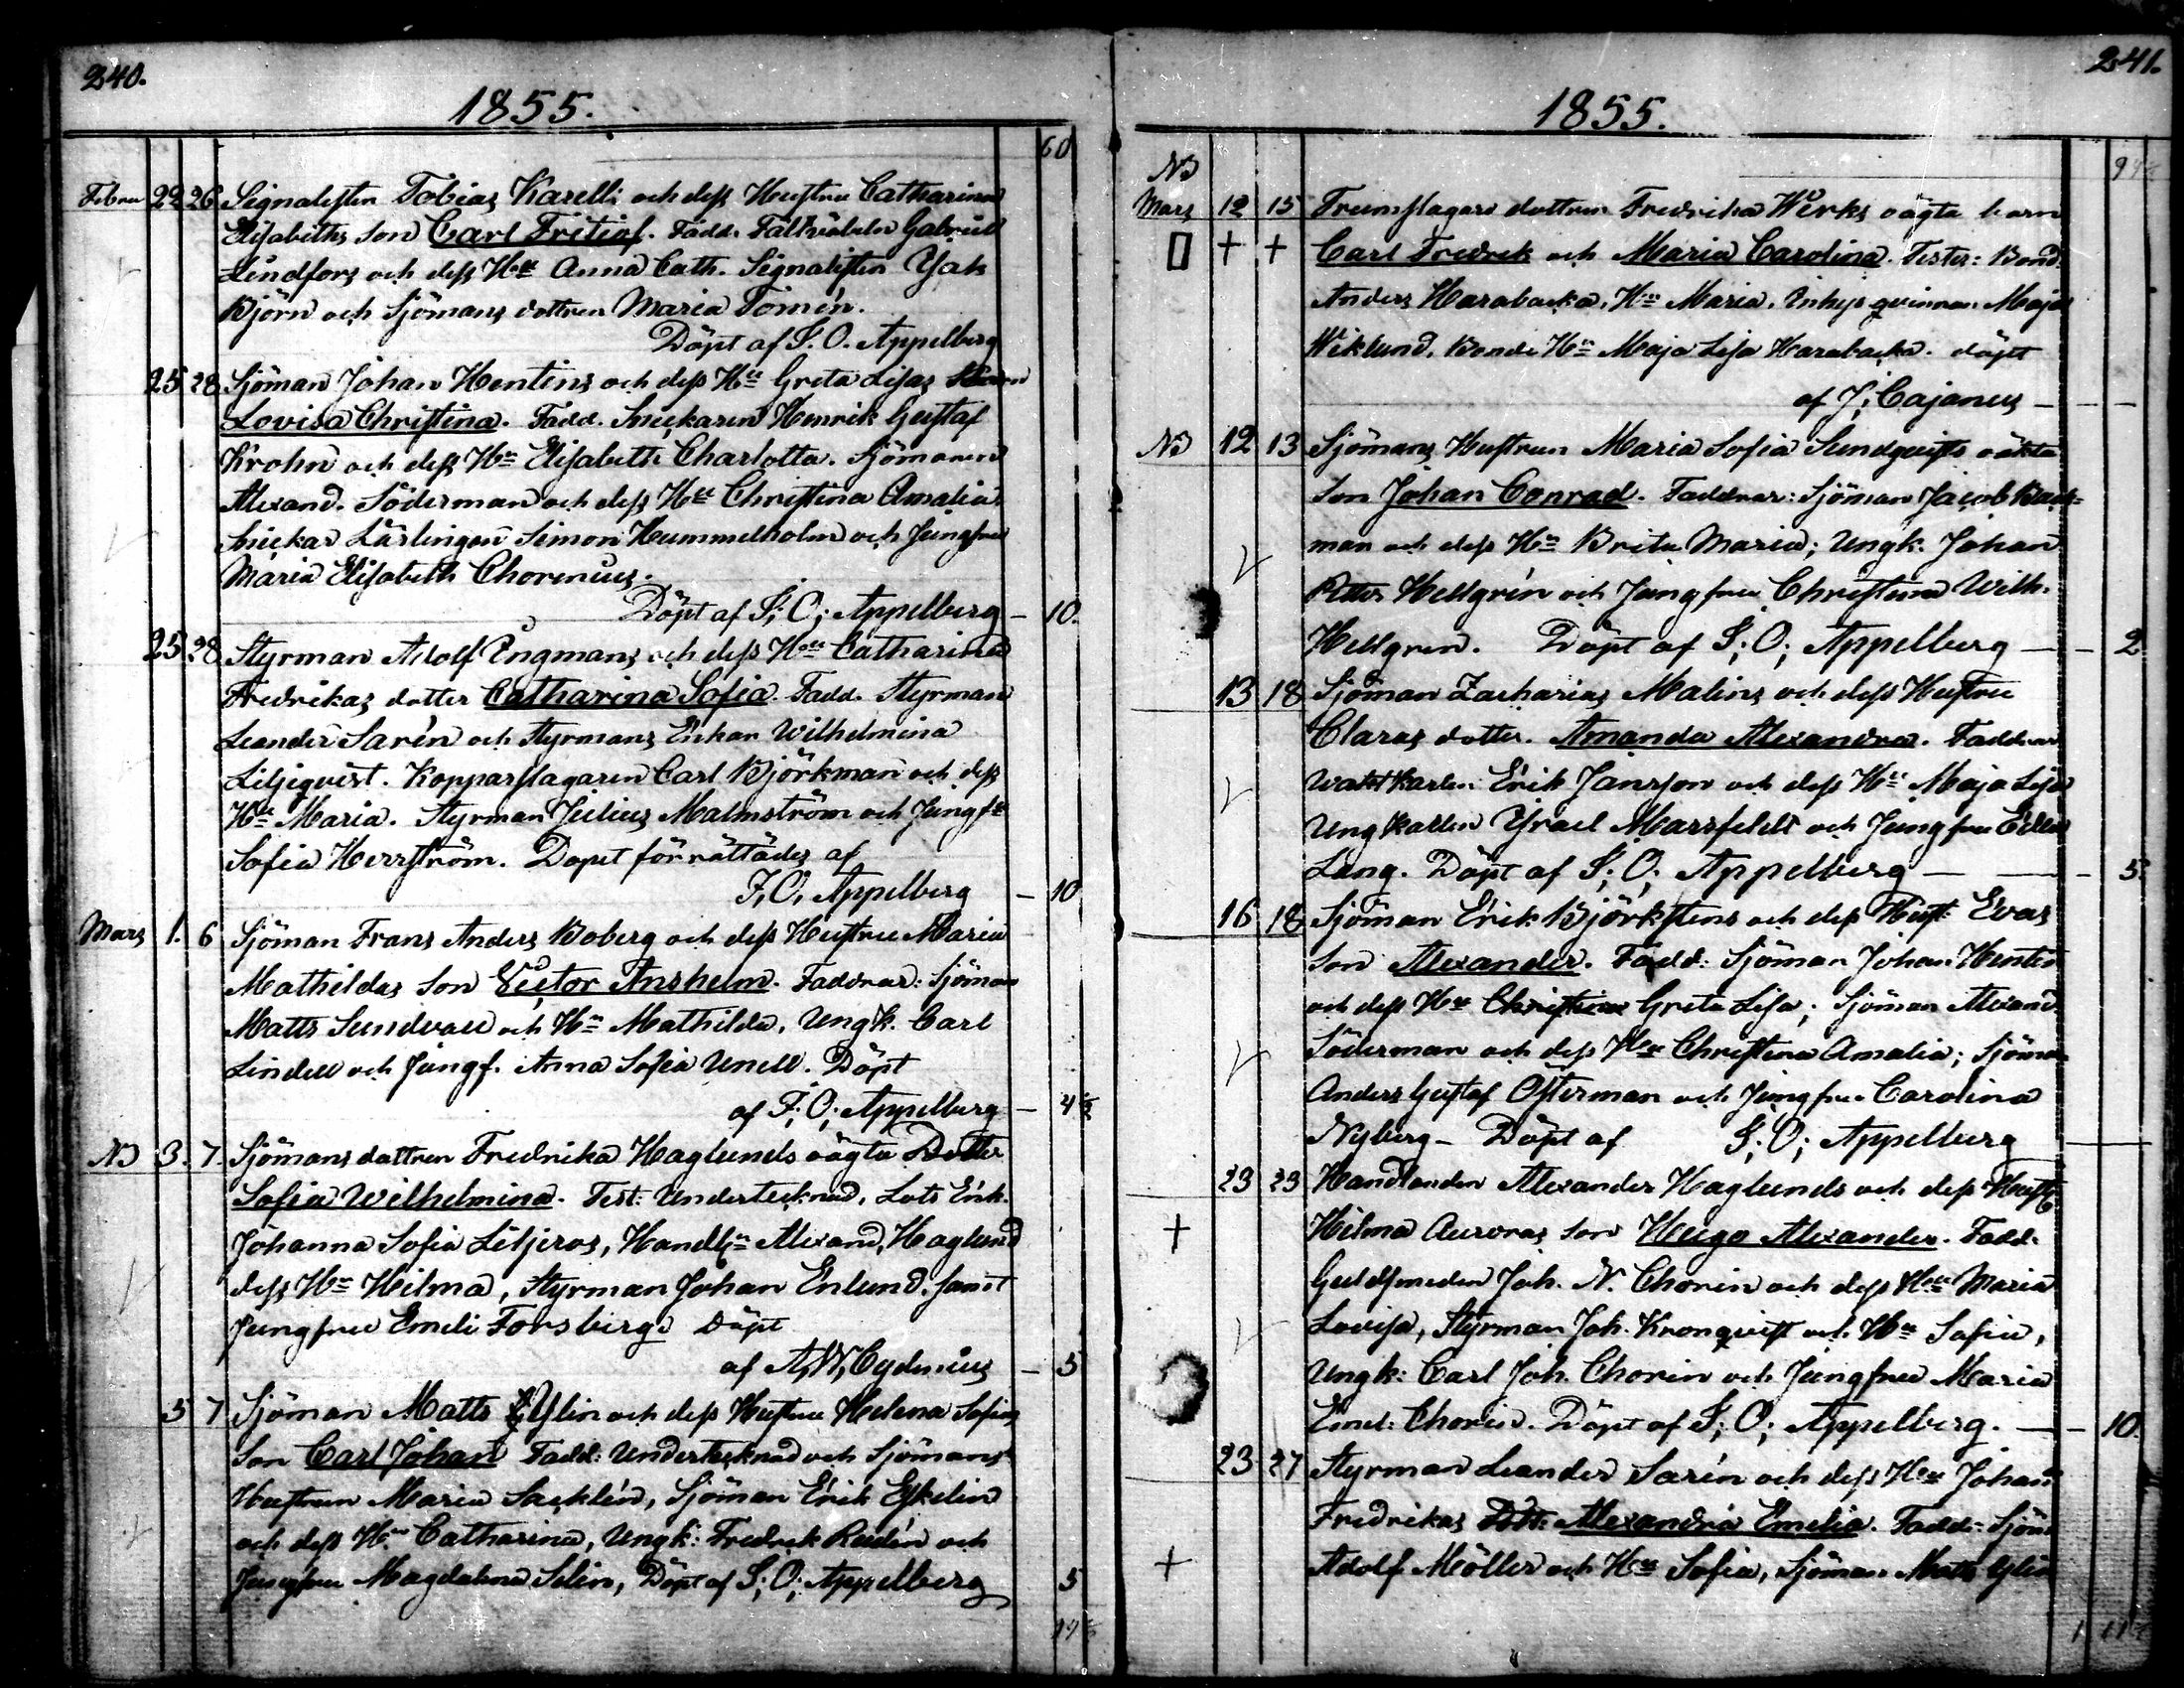 240.
1855.
60
Febru 22 26 Signalisten Tobias Karells och dess Hustru Catharina
Elisabeths Son Carl Fritiof. Fadd. Gabriel
Lindfors och dess Hu Anna Cath. Signalisten Isak
Björn och Sjömans dottren Maria Tömén.
Döpt af F. O. Appelberg
25 28 Sjöman Johan Hentins och dess Hu Greta Lisas
Lovisa Christina. Fadd. Snickaren Henrik Gustaf
Krohn och dess Hu Elisabeth Charlotta. Sjömannen
Alexand. Söderman och dess Hu Christina Amalia.
Snickar Lärlingen Simon Hummelholm och Jungfru
Maria Elisabeth Chorenius.
Döpt af F; O; Appelberg - 10.
25 28 Styrman Adolf Engmans och dess Hu Catharina
Fredrikas dotter Catharina Sofia. Fadd. Styrman
Leander Sarén och Styrmans Enkan Wilhelmina
Liljeqvist. Kopparslagaren Carl Björkman och dess
Hu Maria. Styrman Julius Malmström och Jungf
Sofia Herrström. Dopet förrättades af
F, O, Appelberg - 10
Mars 1. 6 Sjöman Frans Anders Boberg och dess Hustru Maria
Mathildas Son Victor Anshelm. Faddrar: Sjöman
Matts Sundvall och Hu Mathilda, Ungk. Carl
Lindell och Jungf. Anna Sofia Unell. Döpt
af F; O; Appelberg - 4 1/2
NB 3. 7. Sjömans dottren Fredrika Haglunds oägta Dotter
Sofia Wilhelmina. Test: Undertecknad, Lots Enk.
Johanna Sofia Liljeros, Handl Alexand, Haglund
dess Hu Hilma, Styrman Johan Enlund, samt
Jungfru Emeli Forsberg. Döpt
af A, W, Cydenius - 5
5 7 Sjöman Matts Ylin och dess Hustru Helena Sofias
Son Carl Johan Fadd: Undertecknad och Sjömans
Hustrun Maria Sacklén, Sjöman Erik Eskelin
och dess Hu Catharina, Ungk: Fredrik Rudén och
Jungfru Magdalena Selin, Döpt af F; O; Appelberg 5
241.
1855.
NB
Mars 12 15 Trumslagare dottren Fredrika Werks oägta barn
+ + Carl Fredrik och Maria Carolina. Tester: Bond.
Anders Harabacka, Hu Maria. Inhys qvinnan Maja
Wiklund, Bonde Hu Maja Lisa Harabacka. döpt
af J; Cajanus -
NB 12 13 Sjömans Hustrun Maria Sofia Sundqvists oäkta
Son Johan Conrad. Faddrar: Sjöman Jacob Back-
man och dess Hu Brita Maria; Ungk. Johan
Petter Hellgrén och Jungfru Christina Wilh.
Hellgren. Döpt af F; O; Appelberg - 2
13 18 Sjöman Zacharias Malins och dess Hustru
Claras dotter. Amanda Alexandra. Faddrar
Erik Jansson och dess Hu Maja Lisa
Ungkarlen Israel Marsfeldt och Jungfru
Lang. Döpt af F; O; Appelberg - 5.
16 18 Sjöman Erik Björkstens och dess Hust: Evas
Son Alexander. Fadd: Sjöman Johan Hentin
och dess Hu Christina Greta Lisa; Sjöman Alexand
Söderman och dess Hu Christina Amalia; Sjöman
Anders Gustaf Österman och Jungfru Carolina
Nyberg - Döpt af F; O; Appelberg
23 23 Handlanden Alexander Haglunds och dess Hust:
+ Hilma Auroras Son Hugo Alexander. Fadd.
Guldsmeden Joh. N. Chorin och dess Hu Maria
Lovisa, Styrman Joh. Kronqvist och Hu Sofia,
Ungk: Carl Joh. Chorin och Jungfru Maria
Emel. Chorin. Döpt af F; O; Appelberg. - 10.
23 27 Styrman Leander Sarén och dess Hu Johan
Fredrikas Dott: Alexandra Emelia. Fadd: Sjöm
+ Adolf Möller och Hu Sofia, Sjöman Matts Ylin